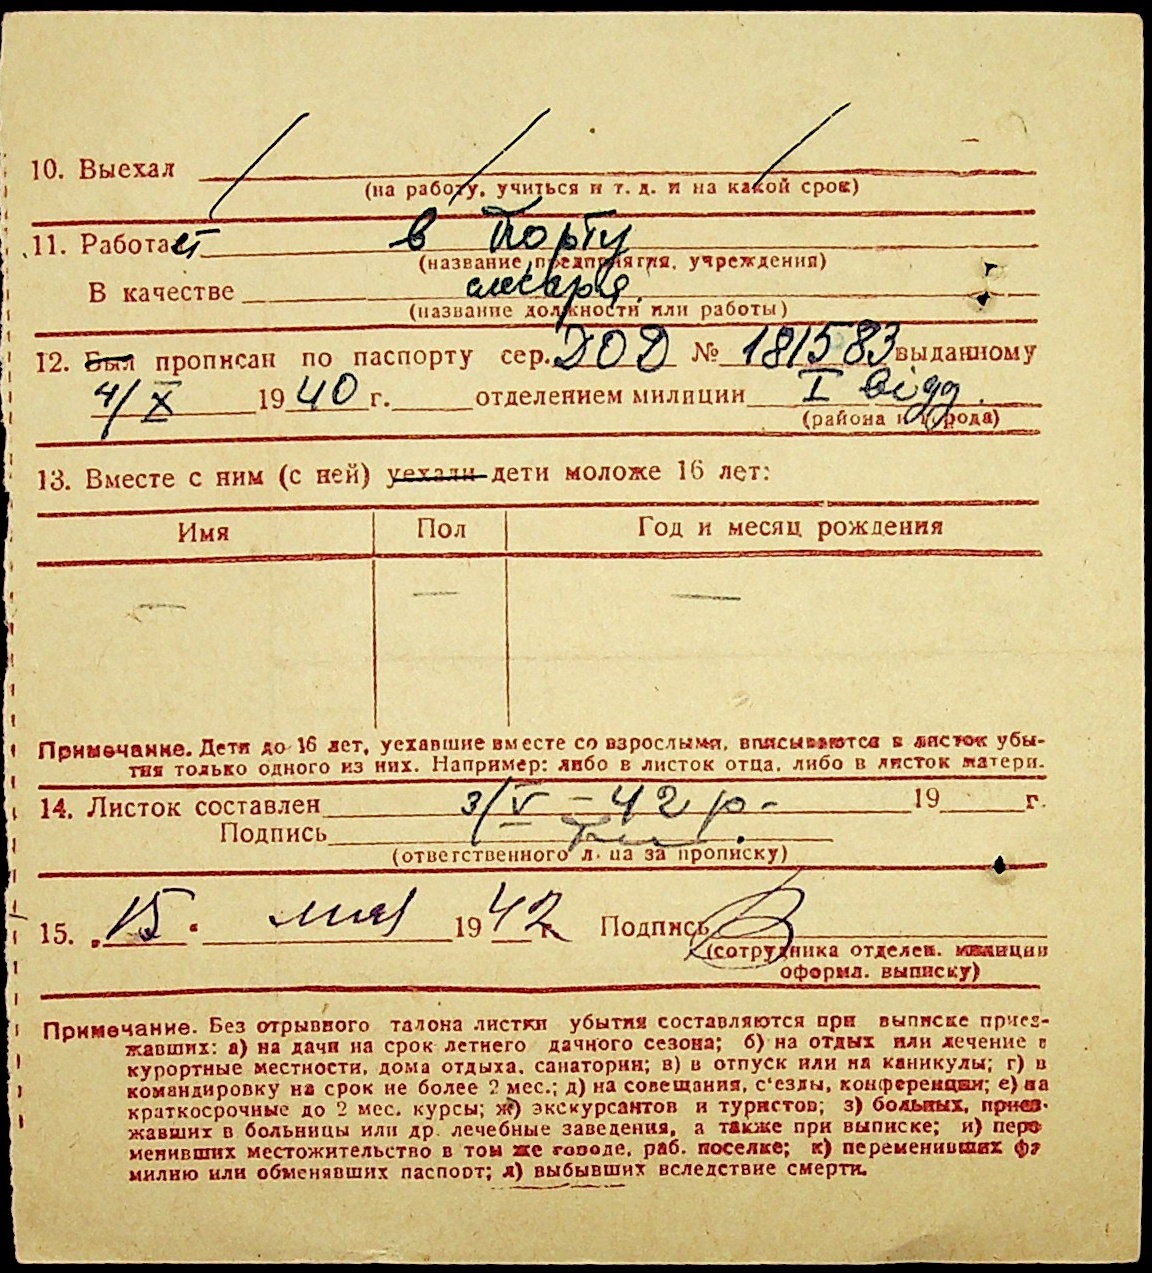 10. Выехал
(на работу, учиться и т. д. и на какой срок)
11. Работает в Порту
(название предприятия, учреждения)
В качестве слесаря
(название должности или работы)
12. Был прописан по паспорту сер. ДОД № 181583 выданному
4/X 1940 г. отделением милиции I відд.
(района и города)
13. Вместе с ним (с ней) уехали дети моложе 16 лет:
Имя Пол Год и месяц рождения
— — —
Примечание. Дети до 16 лет, уехавшие вместе со взрослыми, вписываются в листок убы-
тия только одного из них. Например: либо в листок отца, либо в листок матери.
14. Листок составлен 3/V – 42 р. 19 г.
Подпись
(ответственного лица за прописку)
15. 15 мая 1942 г. Подпись
(сотрудника отделен. милиции
оформл. выписку)
Примечание. Без отрывного талона листки убытия составляются при выписке приез-
жавших: а) на дачи на срок летнего дачного сезона; б) на отдых или лечение в
курортные местности, дома отдыха, санатории; в) в отпуск или на каникулы; г) в
командировку на срок не более 2 мес.; д) на совещания, с'езды, конференции; е) на
краткосрочные до 2 мес. курсы; ж) экскурсантов и туристов; з) больных, приез-
жавших в больницы или др. лечебные заведения, а также при выписке; и) пере
менивших местожительство в том же городе, раб. поселке; к) переменивших фа
милию или обменявших паспорт; л) выбывших вследствие смерти.